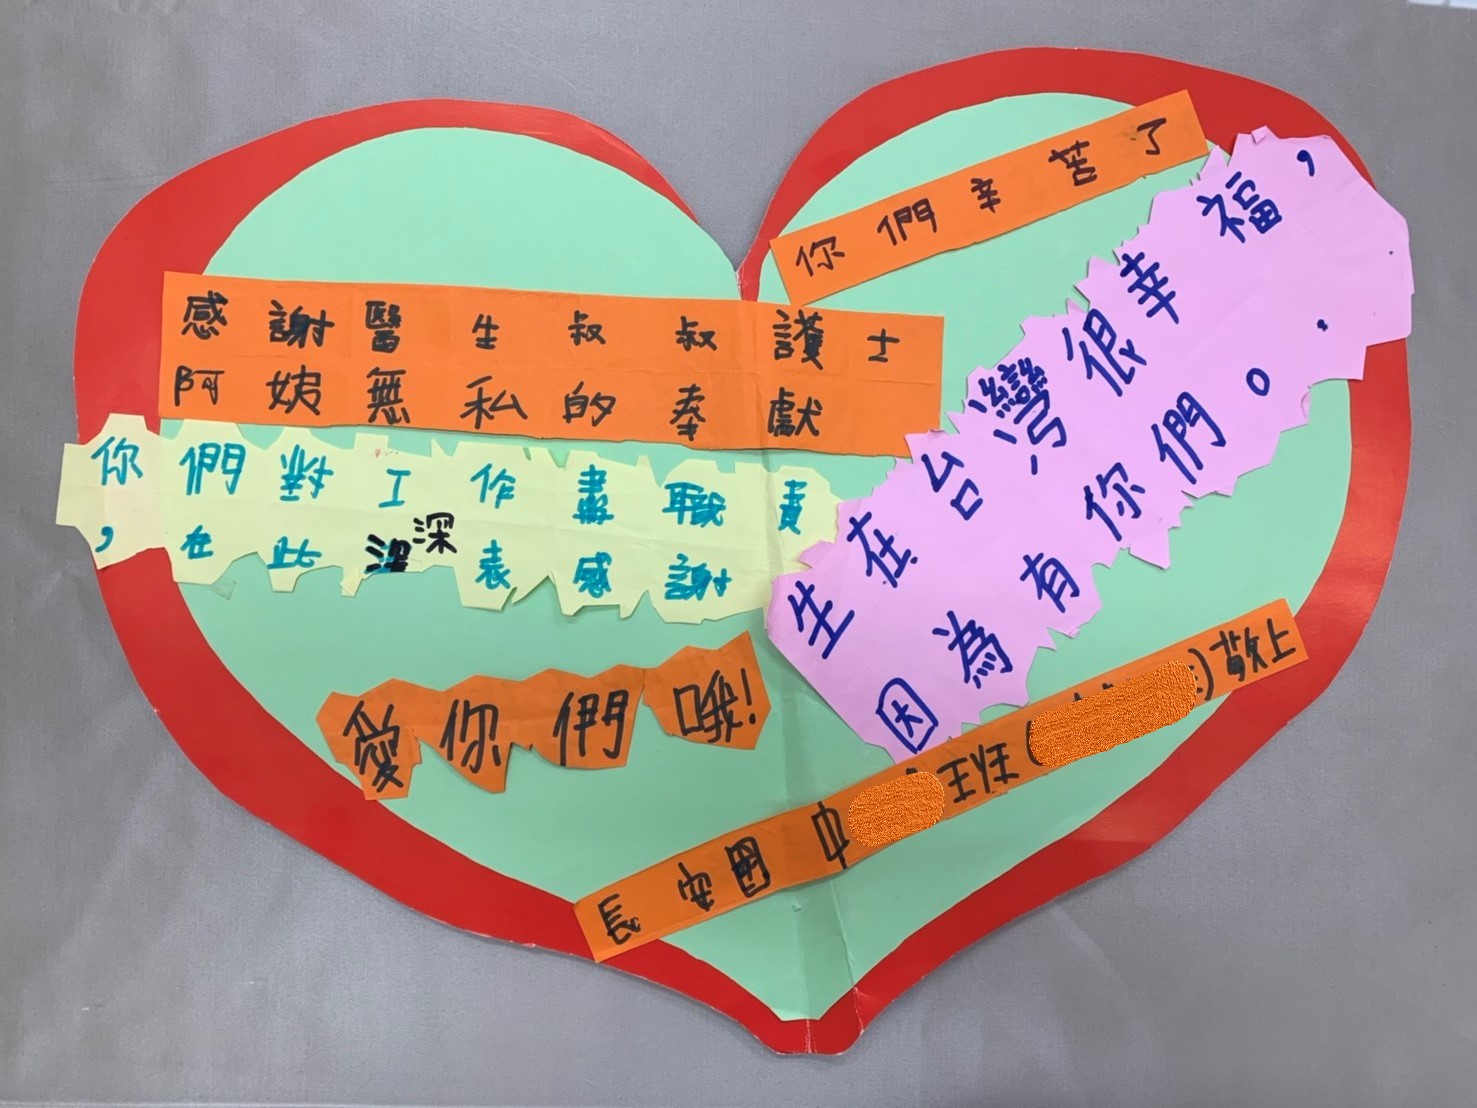 你們辛苦了
感謝醫生叔叔護士
阿姨無私的奉獻
你們對工作盡職責
，在此深表感謝
生在台灣很幸福，
因為有你們。
愛你們哦!
長安國中
班(
)敬上